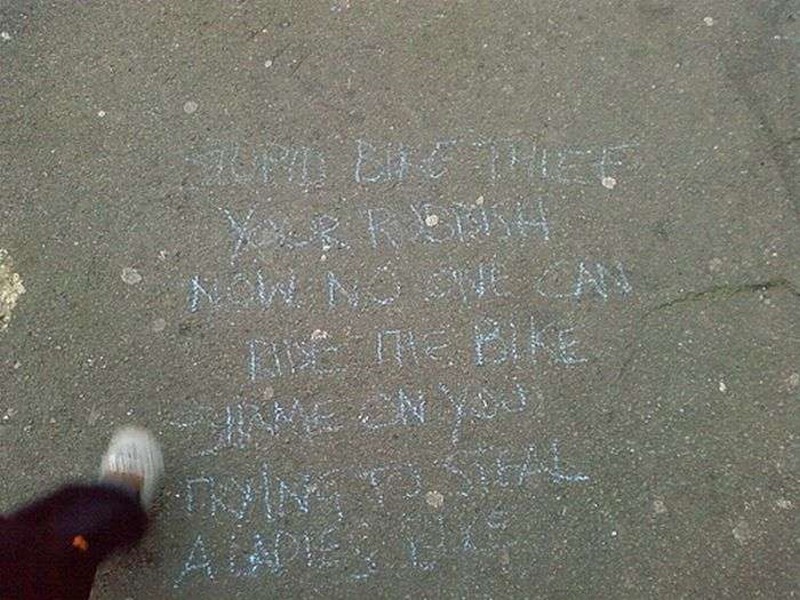 STUPID BIKE THIEF
YOUR RUBBISH
NOW NO ONE CAN
RIDE THE BIKE
SHAME ON YOU
TRYING TO STEAL
A LADIES BIKE